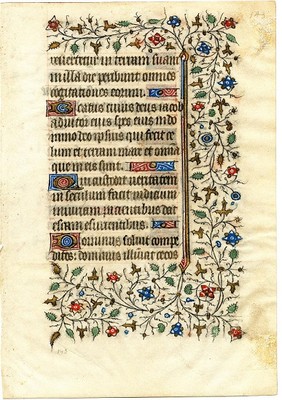 revertetur in terram suam
in illa die peribunt omnes
cogitationes eorum.
Beatus cuius deus iacob
adiutor eius spes eius in do
mino deo ipsius qui fecit ce
lum et terram mare et omnia
que in eis sunt.
Qui custodit veritatem
in seculum facit iudicium
iniuriam pacientibus dat
escam esurientibus.
Dominus solvit compe
ditos: dominus illuīat cecos